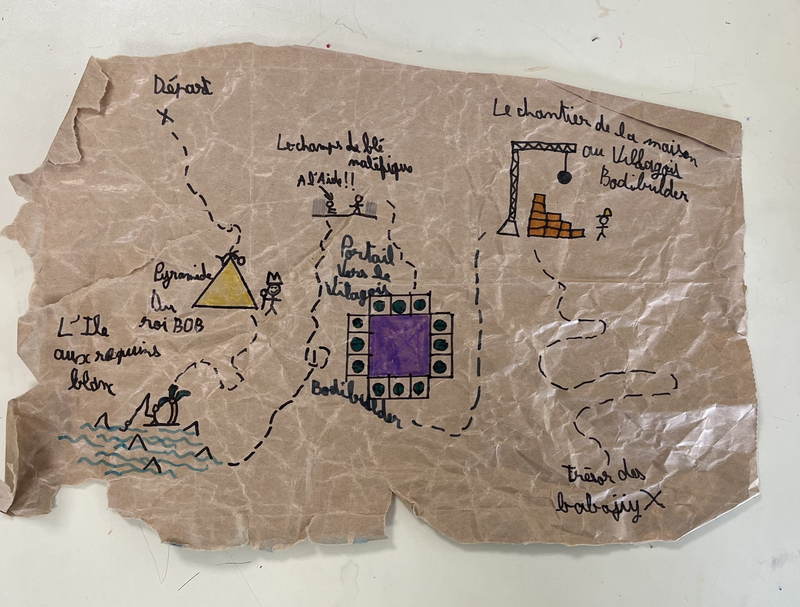 Départ
Pyramide
Du
roi BOB
L'Ile
aux requins
blanc
Le champs de blé
maléfique
A l'Aide!!
Portail
vers le
Vilagois
Bodibuilder
Le chantier de la maison
au Villagois
Bodibuilder
trésor des
babajiy